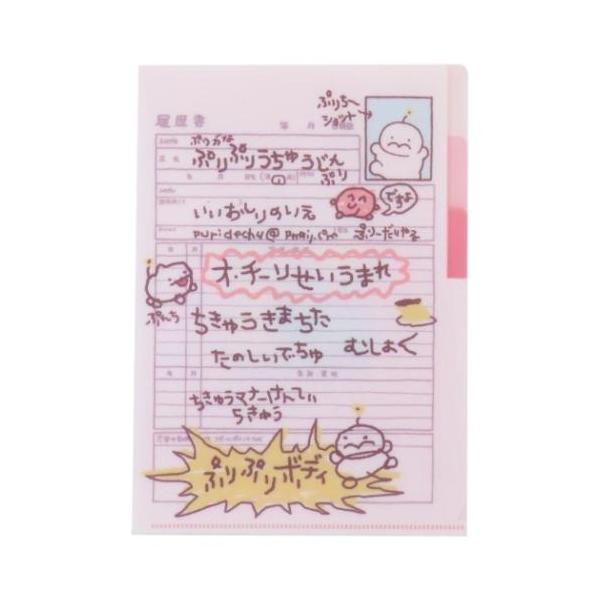 ぷりちー
ショット
履歴書
ぷりがな
ぷりぷりうちゅうじん
ぷり
ですよ
いいおしりのいえ
puridechu@
ぷりーだいやる
オ・チーリせいうまれ
ぷんち
ちきゅうきまちた
たのしいでちゅ
むしょく
ちきゅうマナーけんてい
ちきゅう
ぷりぷりボディ